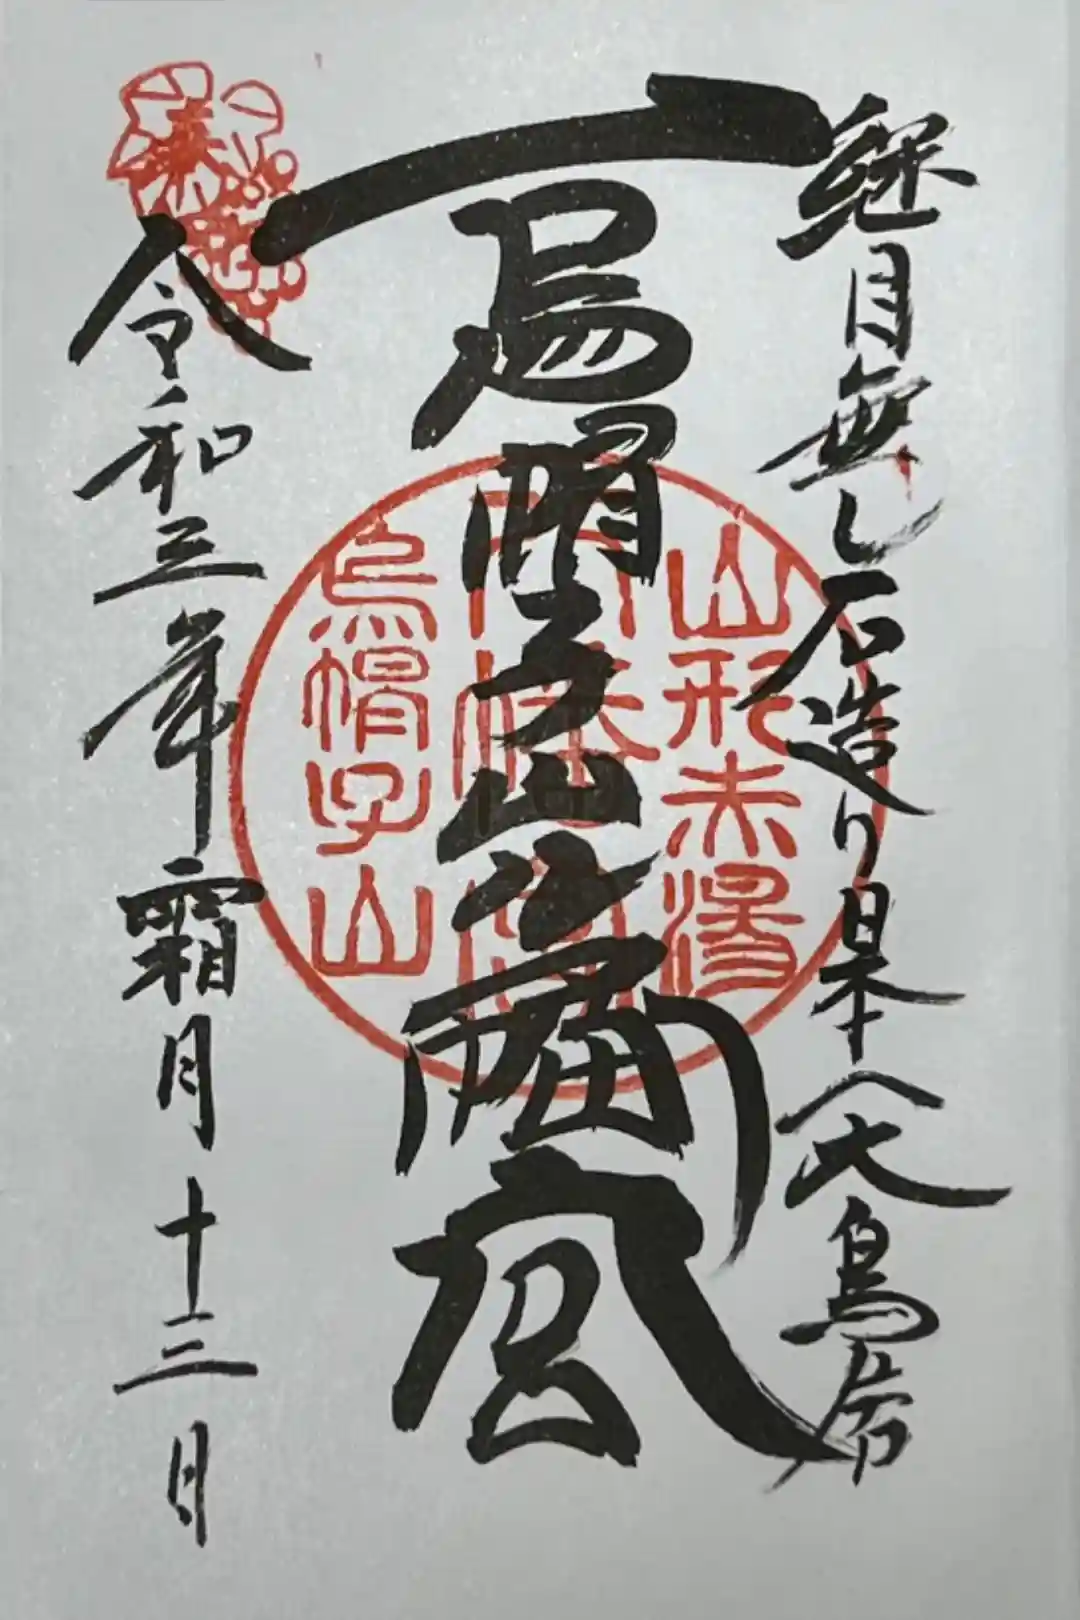 継目無し石造り日本一大鳥居
烏帽子山八幡宮
令和三年霜月十三日
山形赤湯
八幡宮
烏帽子山
奉